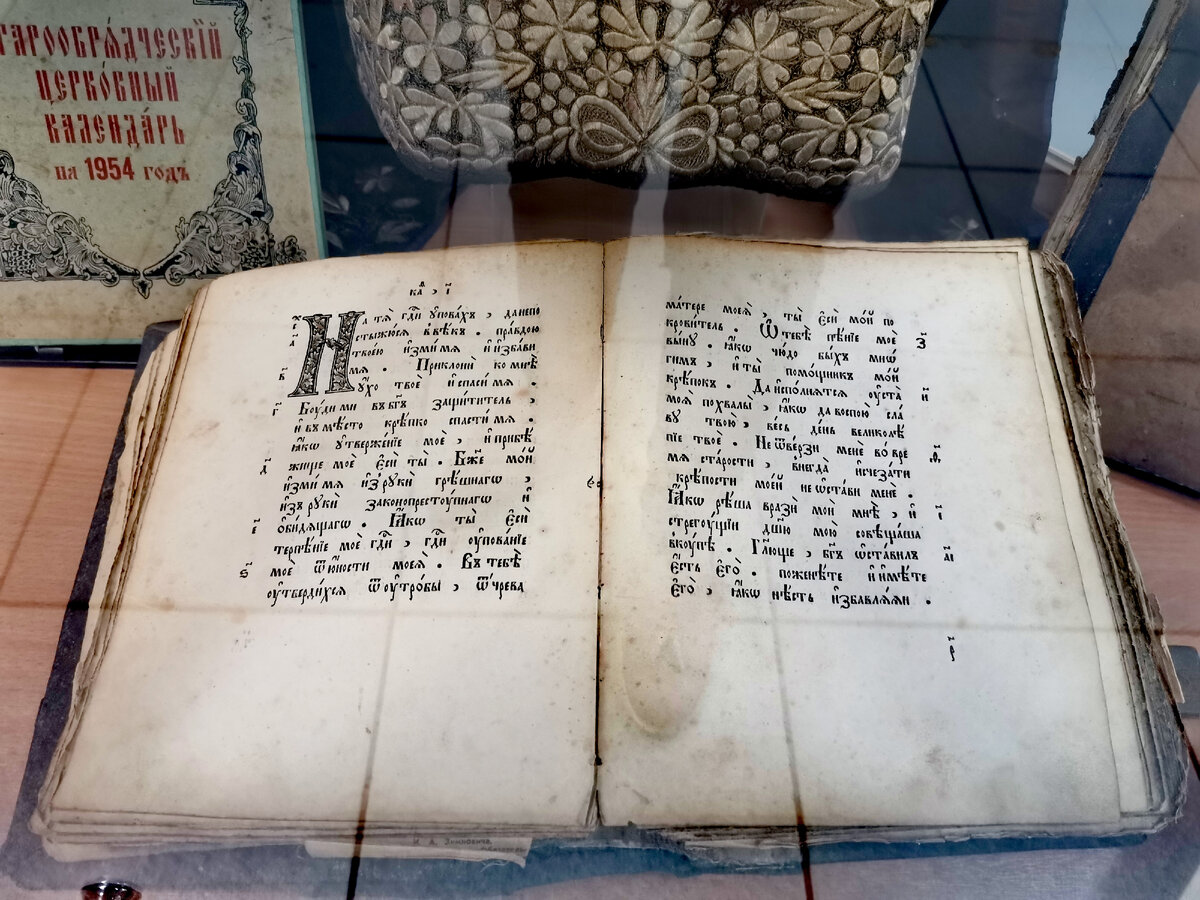 СТАРООБРѦ́ДЧЕСКЇЙ
ЦЕРКО́ВНЫЙ
КАЛЕНДА́РЬ
на 1954 годъ
На тѧ̀ гдⷭ҇и ᲂу҆пова́хъ , да непо
стыжꙋ́сѧ в̾вѣ́къ . пра́вдою
твое́ю и҆зми́ мѧ и҆ и҆зба́ви
мѧ . Приклонѝ ко мнѣ̀
ᲂу҆́хо твоѐ и҆ спаси́ мѧ .
Бꙋ́ди ми въ бг҃ъ защи́титель ,
и҆ въ мѣ́сто крѣ́пко спасти́ мѧ .
ꙗ҆́кѡ ᲂу҆твержде́нїе моѐ , и҆ прибѣ́
жище моѐ є҆сѝ ты̀ . Бж҃е мо́й
и҆зми́ мѧ и҆з̾ рꙋкѝ грѣ́шнагѡ ,
и҆з̾ рꙋкѝ законопрестꙋ́пнагѡ и҆
ѻ҆би́дѧщагѡ . Ꙗ҆́кѡ ты̀ є҆сѝ
терпѣ́нїе моѐ гдⷭ҇и , гдⷭ҇и ᲂу҆пова́нїе
моѐ ѿ ю҆́ности моеѧ̀ . Въ тебѣ̀
ᲂу҆тверди́хсѧ ѿ ᲂу҆тро́бы , ѿ чре́ва
ма́тере моеѧ̀ , ты̀ є҆сѝ мо́й по
крови́тель . Ѡ҆ тебѣ̀ пѣ́нїе моѐ
вы́нꙋ . ꙗ҆́кѡ чю́до бы́хъ мнѡ́
гимъ , и҆ ты̀ помо́щникъ мо́й
крѣ́покъ . Да и҆спо́лнѧтсѧ ᲂу҆ста̀
моѧ̀ похвалы̀ , ꙗ҆́кѡ да воспою̀ сла́
вꙋ твою̀ , ве́сь де́нь великолѣ́
пїе твоѐ . Не ѿве́рзи менѐ во вре́
мѧ ста́рости , внегда̀ и҆счеза́ти
крѣ́пости мое́й не ѡ҆ста́ви менѐ .
Ꙗ҆́кѡ рѣ́ша вразѝ моѝ мнѣ̀ , и҆
стрегꙋ́щїи дш҃ю мою̀ совѣща́ша
вкꙋ́пѣ . Гл҃юще , бг҃ъ ѡ҆ста́вилъ
є҆́сть є҆го̀ . пожене́те и҆ и҆ме́те
є҆го̀ , ꙗ҆́кѡ нѣ́сть и҆збавлѧ́ѧи .